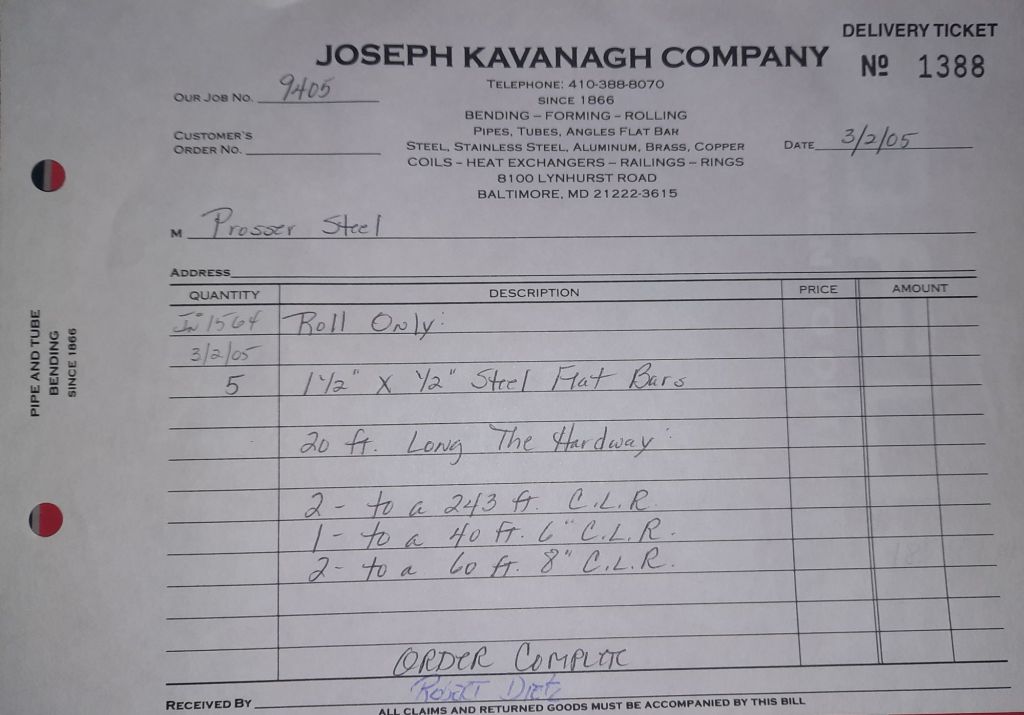 DELIVERY TICKET
JOSEPH KAVANAGH COMPANY
Nº 1388
TELEPHONE: 410-388-8070
OUR JOB NO. 9405
SINCE 1866
BENDING – FORMING – ROLLING
CUSTOMER'S
ORDER NO.
PIPES, TUBES, ANGLES FLAT BAR
STEEL, STAINLESS STEEL, ALUMINUM, BRASS, COPPER
DATE 3/2/05
COILS – HEAT EXCHANGERS – RAILINGS – RINGS
8100 LYNHURST ROAD
BALTIMORE, MD 21222-3615
M Prosser Steel
ADDRESS
QUANTITY DESCRIPTION PRICE AMOUNT
1564 Roll Only:
3/2/05
5 1 1/2" X 1/2" Steel Flat Bars
20 ft. Long The Hardway:
2 - to a 243 ft. C.L.R.
1 - to a 40 ft. 6" C.L.R.
2 - to a 60 ft. 8" C.L.R.
ORDER COMPLETE
Robert Dietz
RECEIVED BY
ALL CLAIMS AND RETURNED GOODS MUST BE ACCOMPANIED BY THIS BILL
PIPE AND TUBE
BENDING
SINCE 1866